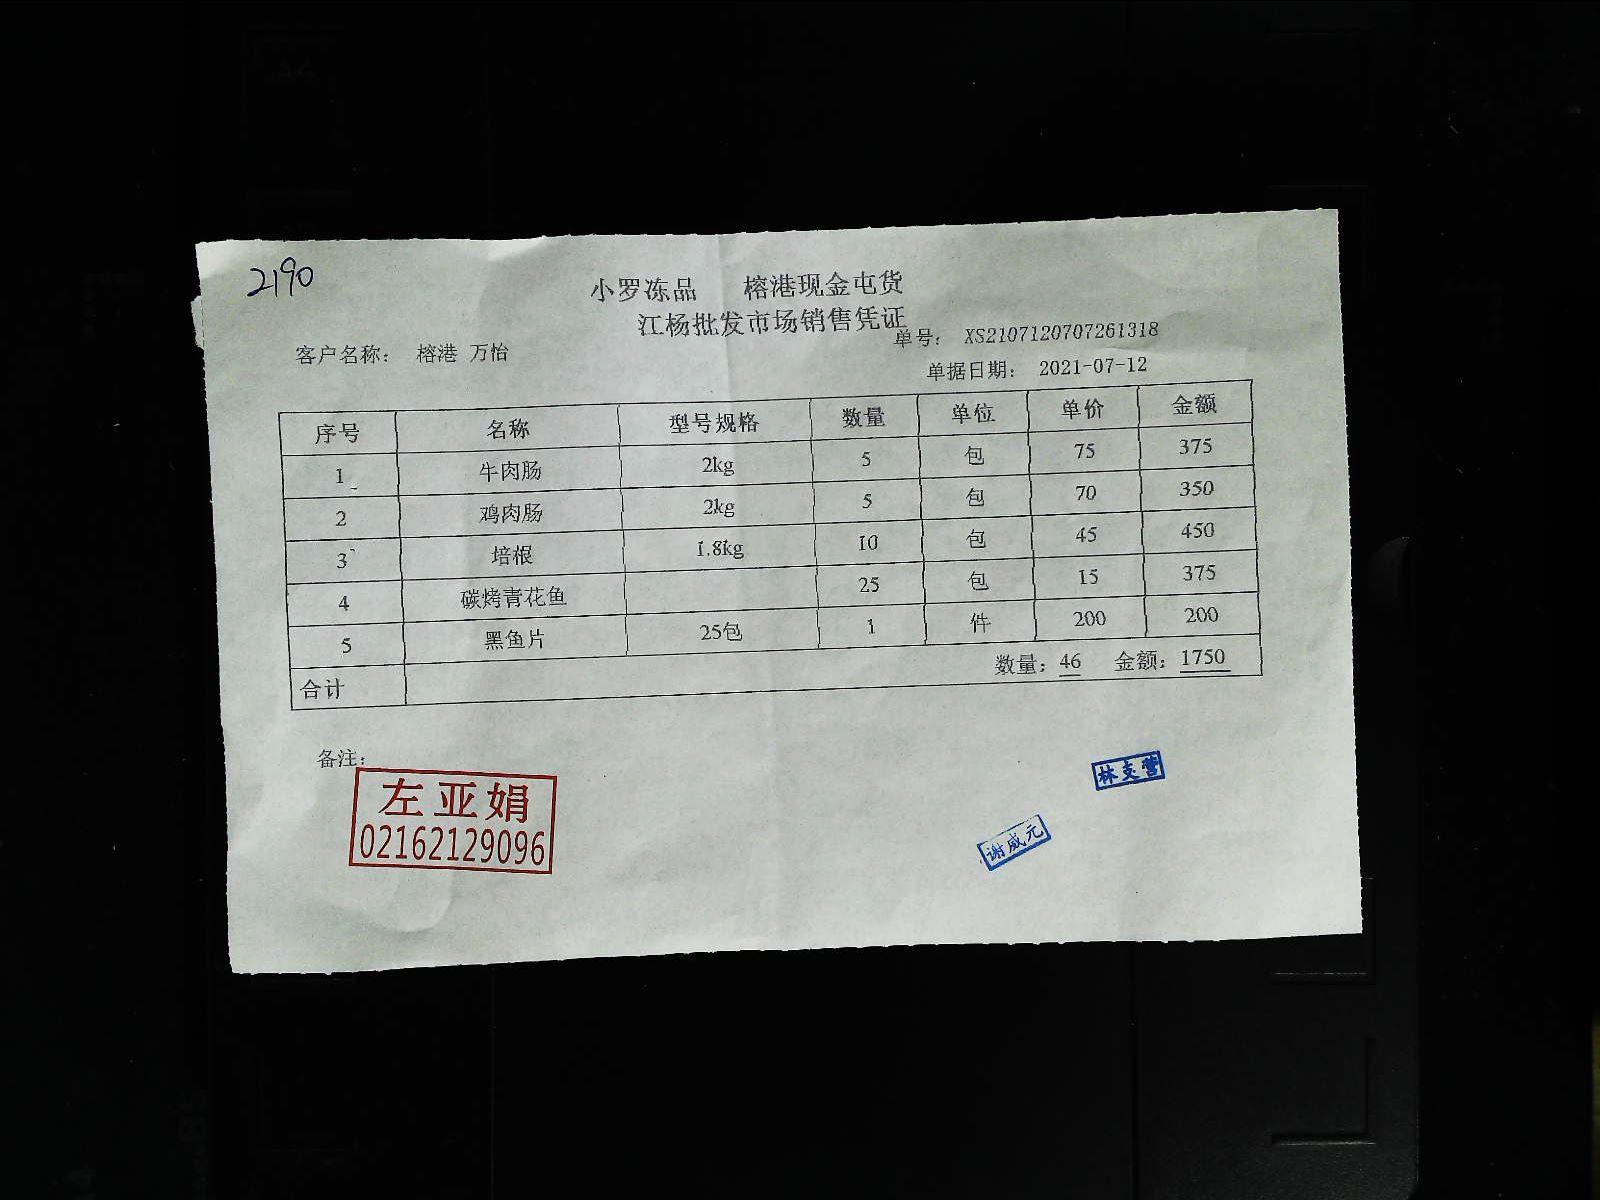 2190
小罗冻品 榕港现金屯货
江杨批发市场销售凭证
单号： XS2107120707261318
客户名称： 榕港 万怡
单据日期： 2021-07-12
序号 名称 型号规格 数量 单位 单价 金额
1 牛肉肠 2kg 5 包 75 375
2 鸡肉肠 2kg 5 包 70 350
3 培根 1.8kg 10 包 45 450
4 碳烤青花鱼 25 包 15 375
5 黑鱼片 25包 1 件 200 200
合计 数量：46 金额：1750
备注：
左亚娟
02162129096
林支营
谢威元